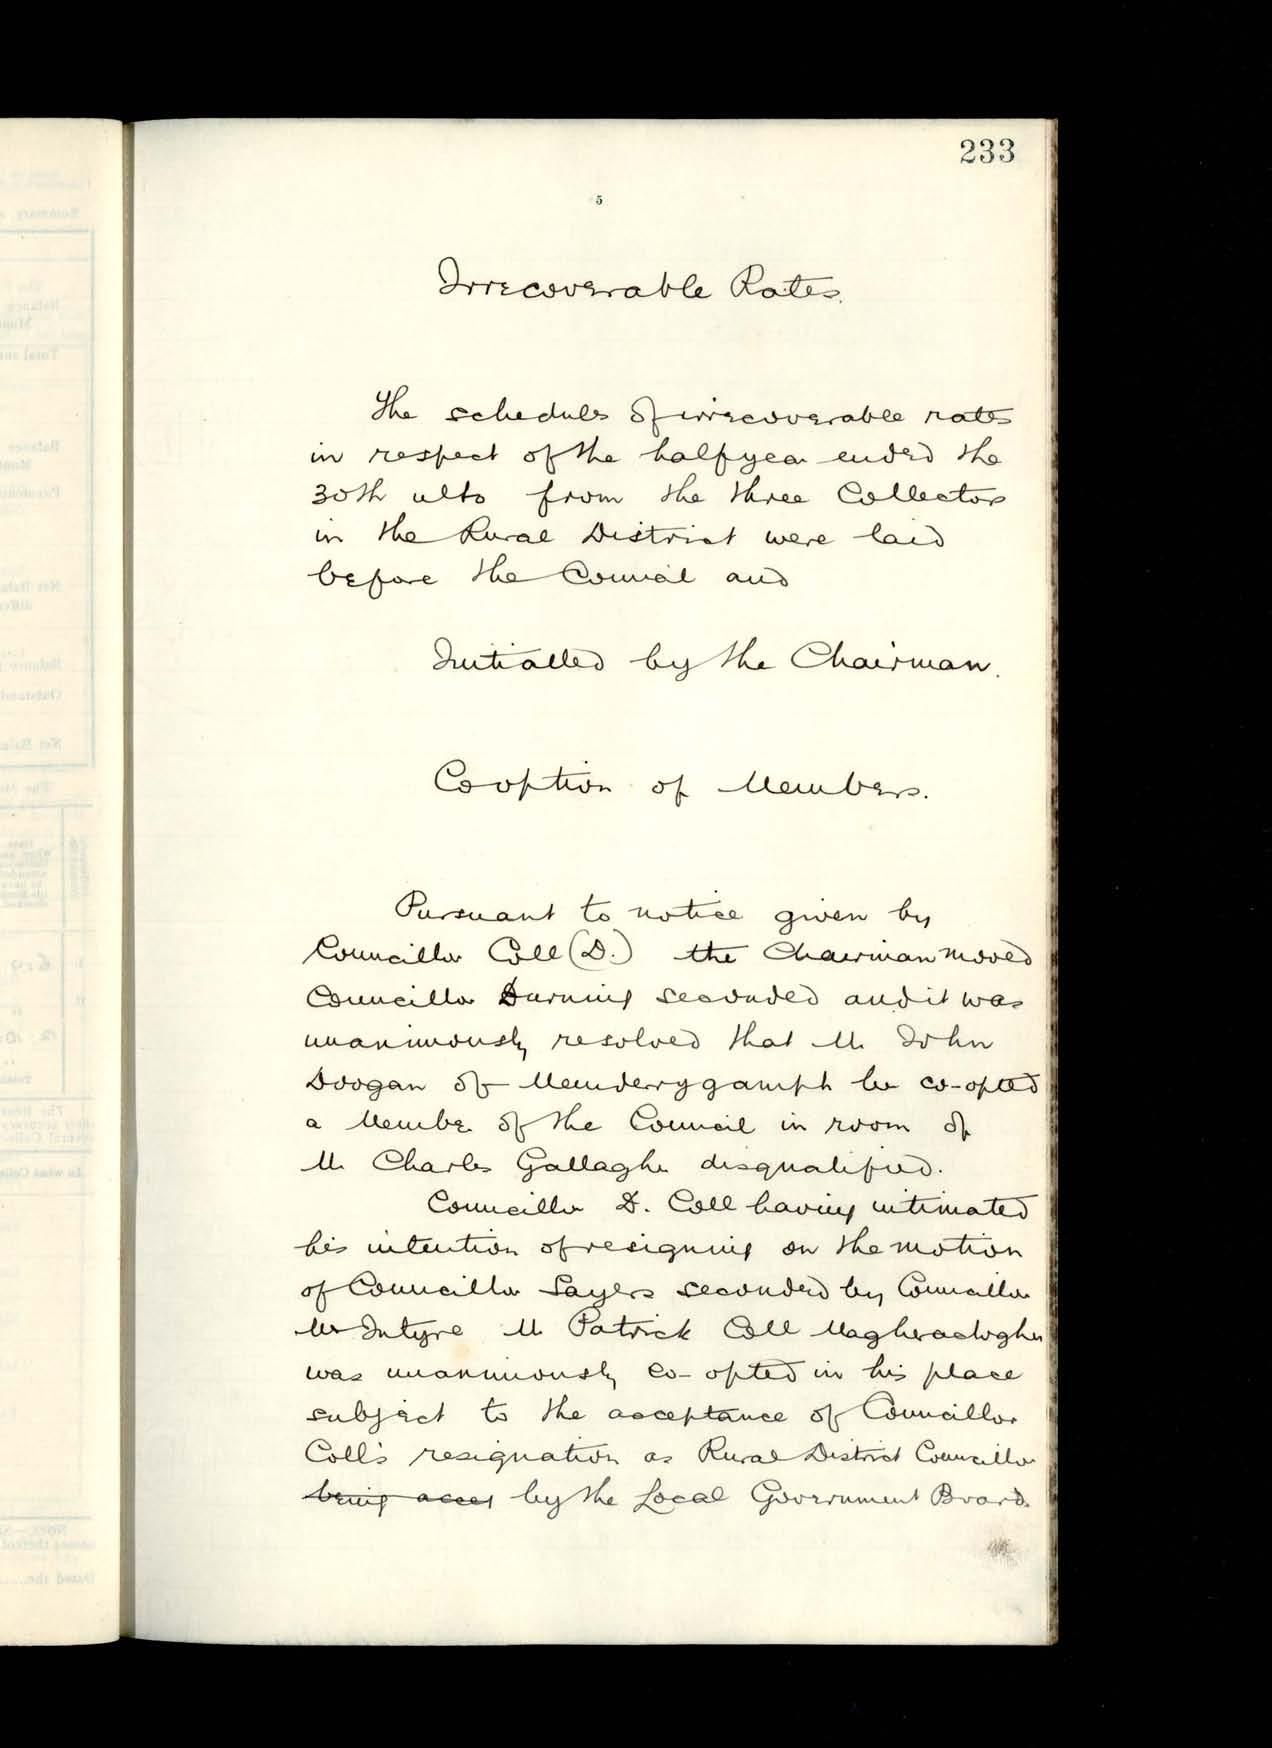 233
5
Irrecoverable Rates.
The schedules of irrecoverable rates
in respect of the halfyear ended the
30th ulto from the three Collectors
in the Rural District were laid
before the Council and
Initialled by the Chairman.
Cooption of Members.
Pursuant to notice given by
Councillor Coll (D.) the Chairman moved
Councillor Durning seconded and it was
unanimously resolved that Mr John
Doogan of Menderrygamph be co-opted
a Member of the Council in room of
Mr Charles Gallagher disqualified.
Councillor D. Coll having intimated
his intention of resigning on the motion
of Councillor Sayers seconded by Councillor
McIntyre Mr Patrick Coll
was unanimously co-opted in his place
subject to the acceptance of Councillor
Coll's resignation as Rural District Councillor
being accep by the Local Government Board.